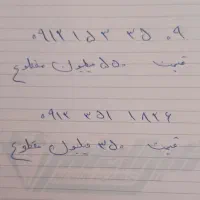 ۰۹۱۲ ۱۵۳ ۳۵ ۰۹
قیمت ۵۵۰ میلیون مقطوع
۰۹۱۲ ۳۵۱ ۱۸۲۶
قیمت ۳۵۰ میلیون مقطوع